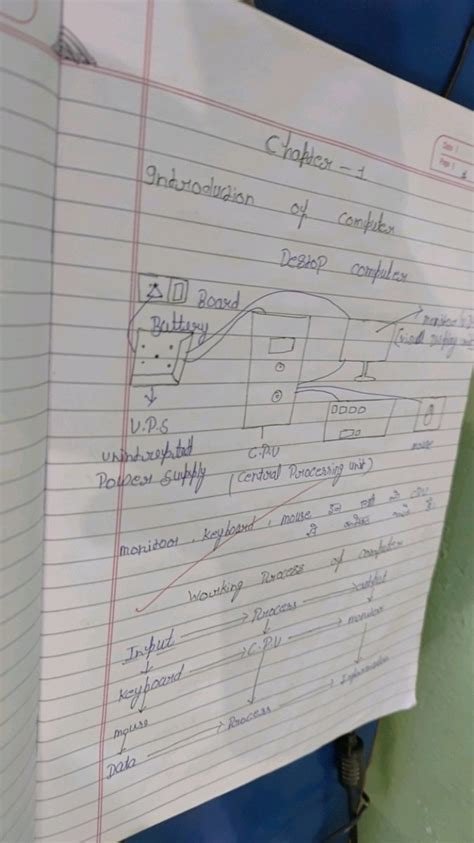 Date
Page
Chapter - 1
Introduction of computer
Destop computer
Board
Battery
monitoor
U.P.S
unintrepted
Power Supply
C.P.U
(Central Processing unit)
mouse
monitoor, keyboard, mouse इन सभी को CPU
से
Working Process of computer
Input → Process → output
Keyboard → C.P.U → monitor
mouse
Data → Process → Information